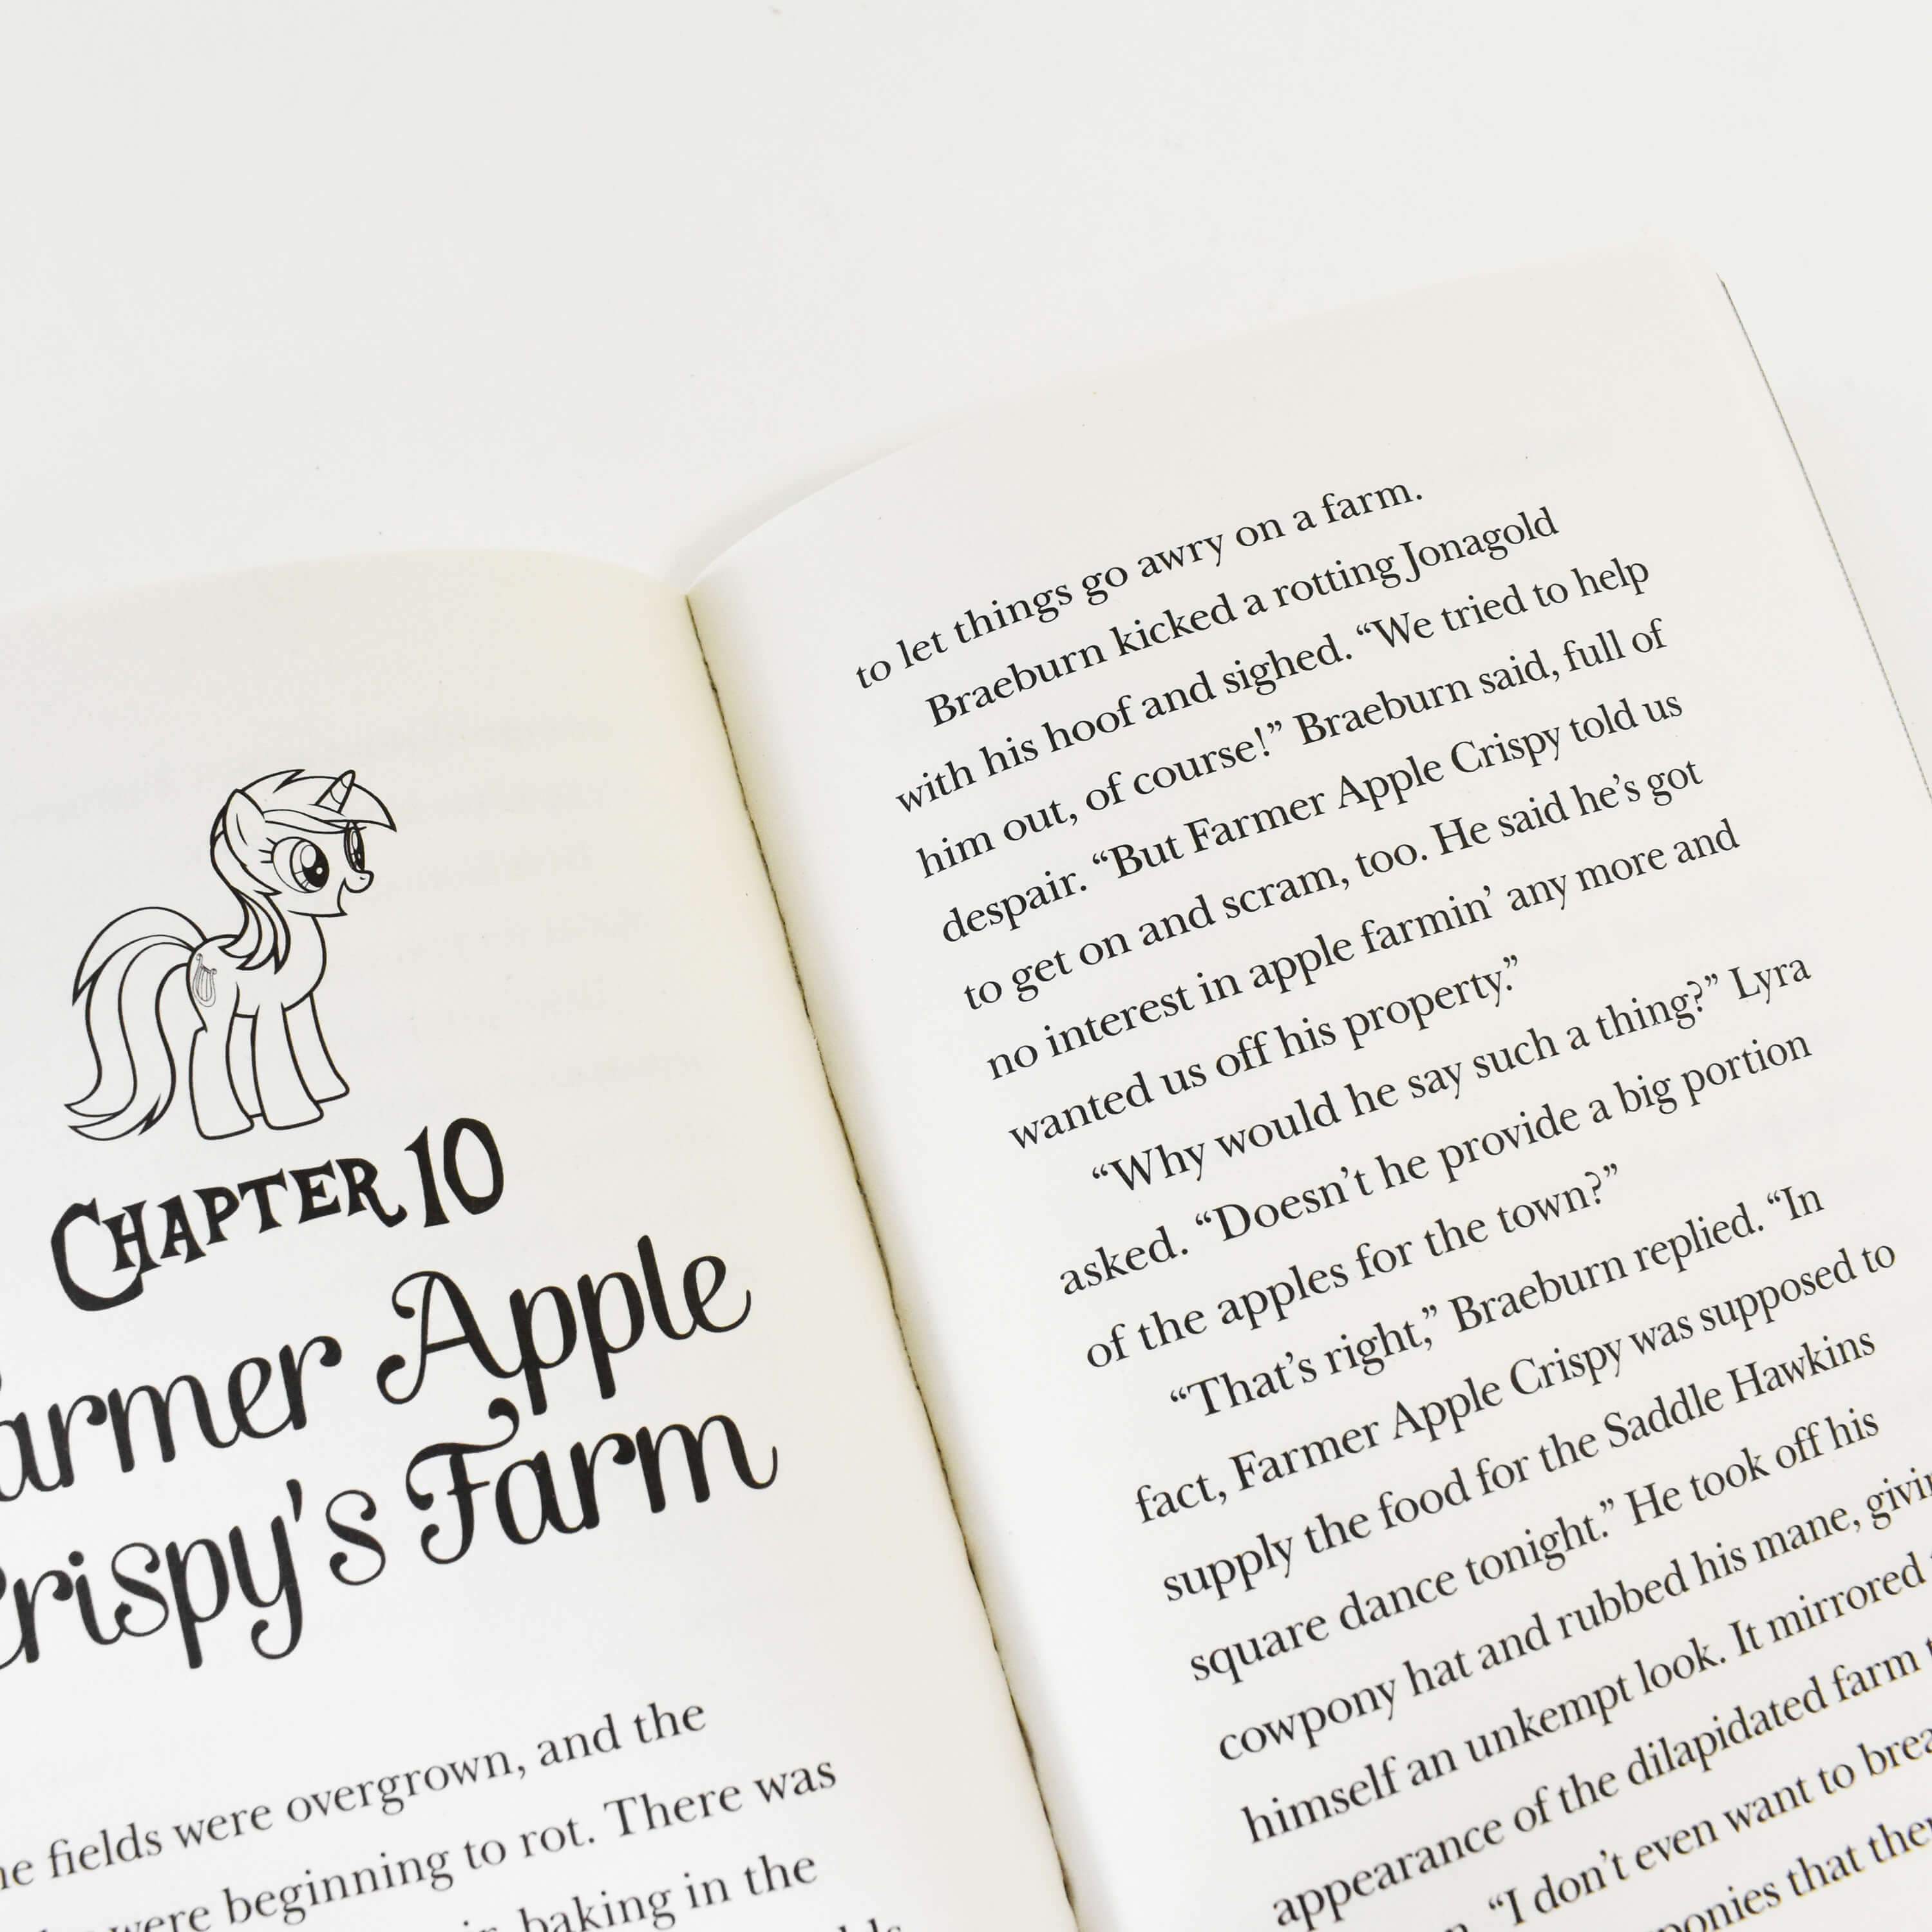 CHAPTER 10
Farmer Apple
Crispy's Farm
fields were overgrown, and the
were beginning to rot. There was
baking in the
to let things go awry on a farm.
Braeburn kicked a rotting Jonagold
with his hoof and sighed. “We tried to help
him out, of course!” Braeburn said, full of
despair. “But Farmer Apple Crispy told us
to get on and scram, too. He said he’s got
no interest in apple farmin’ any more and
wanted us off his property.”
“Why would he say such a thing?” Lyra
asked. “Doesn’t he provide a big portion
of the apples for the town?”
“That’s right,” Braeburn replied. “In
fact, Farmer Apple Crispy was supposed to
supply the food for the Saddle Hawkins
square dance tonight.” He took off his
cowpony hat and rubbed his mane, givin
himself an unkempt look. It mirrored
appearance of the dilapidated farm
“I don’t even want to brea
ponies that